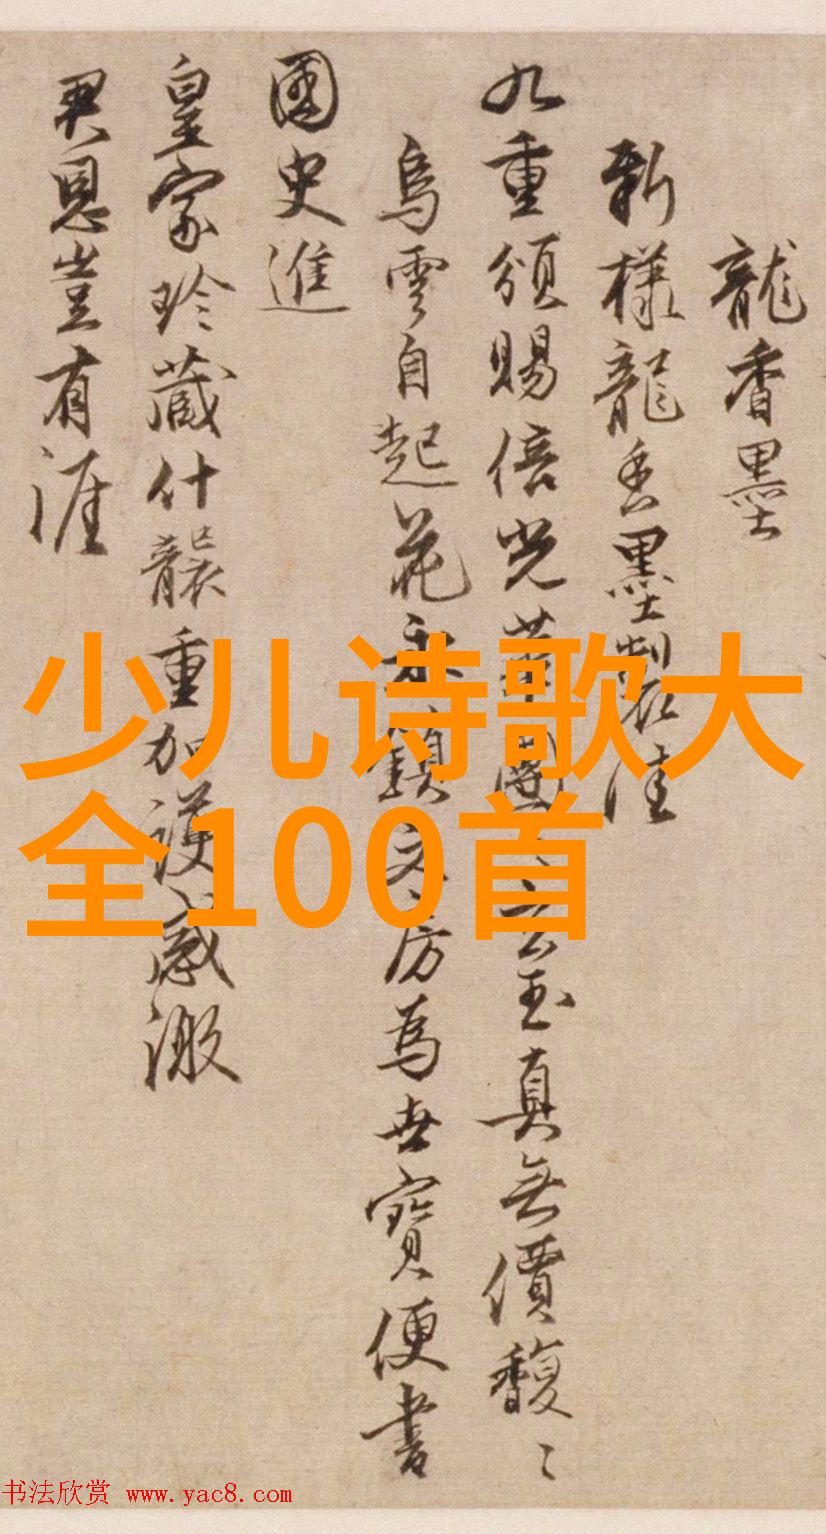 龍香墨
新樣龍香墨製佳
九重頒賜倍光華團〻玄玉真無價馥〻
烏雲自起花永鎮文房為世寶便書
國史進
皇家珍藏什襲重加護感激
君恩豈有涯
少儿诗歌大
全100首
书法欣赏 www.yac8.com